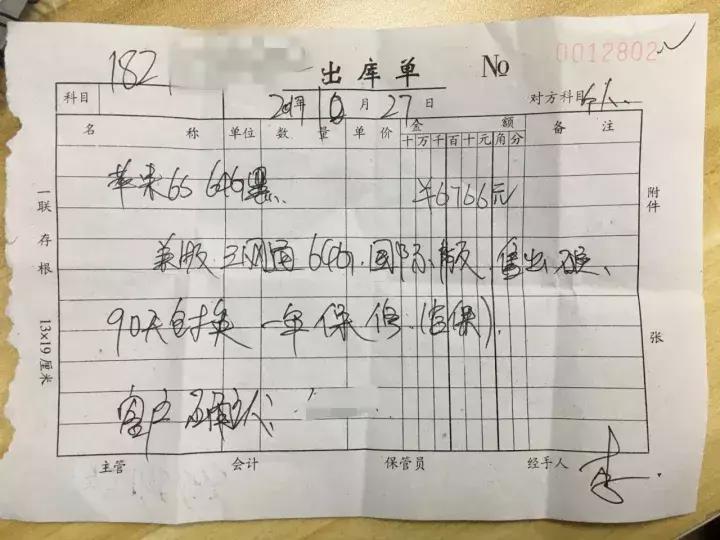 182
出库单 No 0012802
科目 2017年10月27日 对方科目
名称 单位 数量 单价 金额 备注
十万千百十元角分
苹果6S 64G黑 ¥6766元
美版三网通64G.国际版.售出
90天包换 一年保修.(官保)
客户确认
主管 会计 保管员 经手人
一联存根 13×19厘米
附件 张